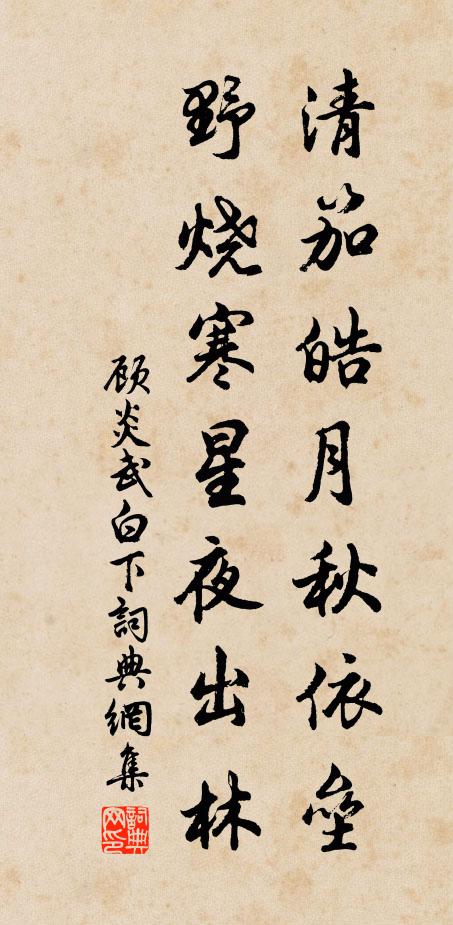 清笳皓月秋依垒
野烧寒星夜出林
顾炎武白下詞典網集
詞典
网印